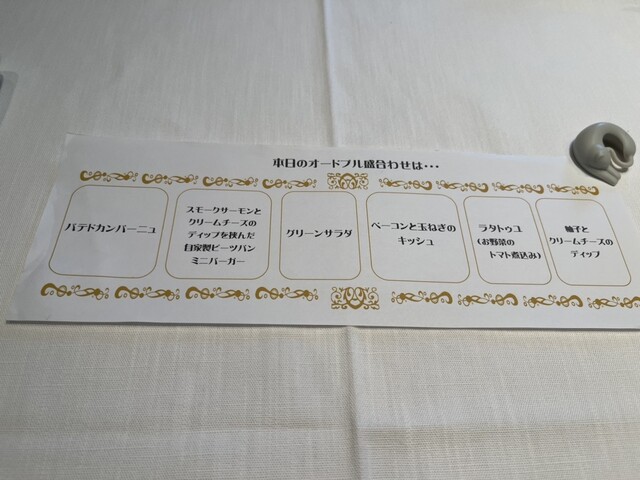 本日のオードブル盛合わせは・・・
パテドカンパーニュ
スモークサーモンと
クリームチーズの
ディップを挟んだ
自家製ビーツパン
ミニバーガー
グリーンサラダ
ベーコンと玉ねぎの
キッシュ
ラタトゥユ
(お野菜の
トマト煮込み)
柚子と
クリームチーズの
ディップ